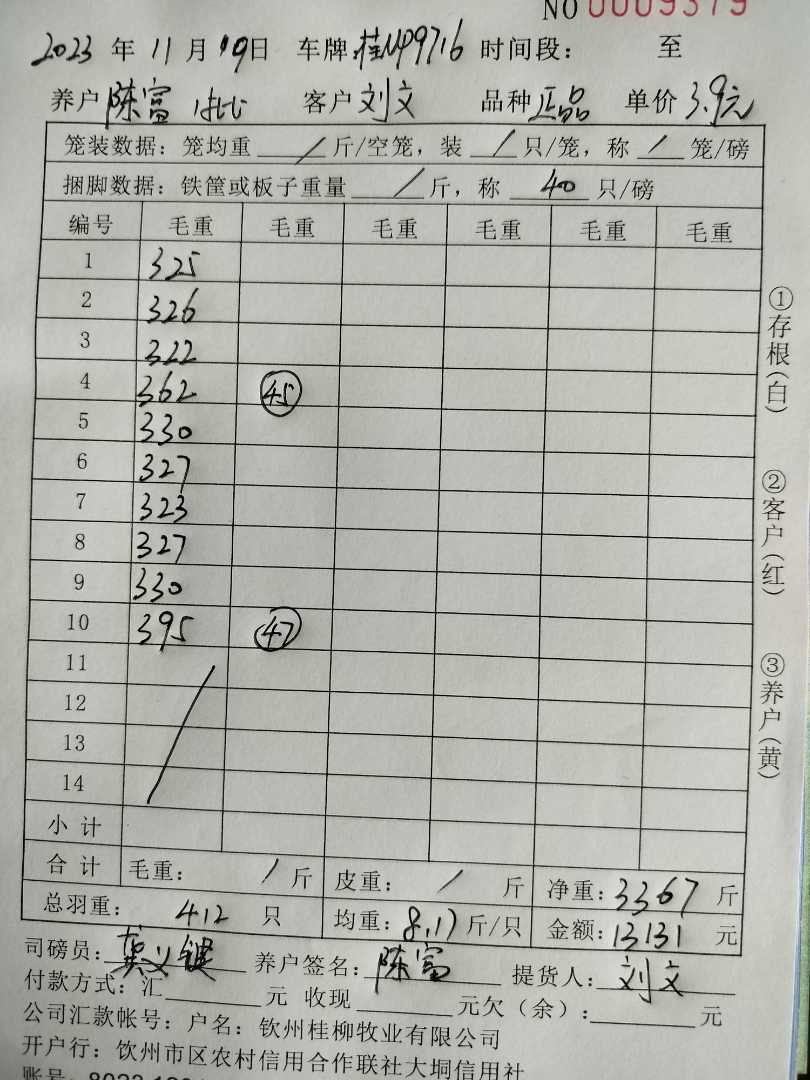 NO 0009379
2023 年 11 月 19 日 车牌 桂MP9716 时间段： 至
养户 陈富 1批 客户 刘文 品种 正品 单价 3.9元
笼装数据：笼均重 / 斤/空笼，装 / 只/笼，称 / 笼/磅
捆脚数据：铁筐或板子重量 / 斤，称 40 只/磅
编号 毛重 毛重 毛重 毛重 毛重 毛重
1 325
2 326
3 322
4 362 45
5 330
6 327
7 323
8 327
9 330
10 395 47
11
12
13
14
小 计
合 计 毛重： / 斤 皮重： / 斤 净重：3367 斤
总羽重： 412 只 均重：8.17 斤/只 金额：13131 元
司磅员： 养户签名：陈富 提货人：刘文
付款方式：汇 元 收现 元欠（余）： 元
公司汇款帐号：户名：钦州桂柳牧业有限公司
开户行：钦州市区农村信用合作联社大垌信用社
账号：
①存根（白）
②客户（红）
③养户（黄）